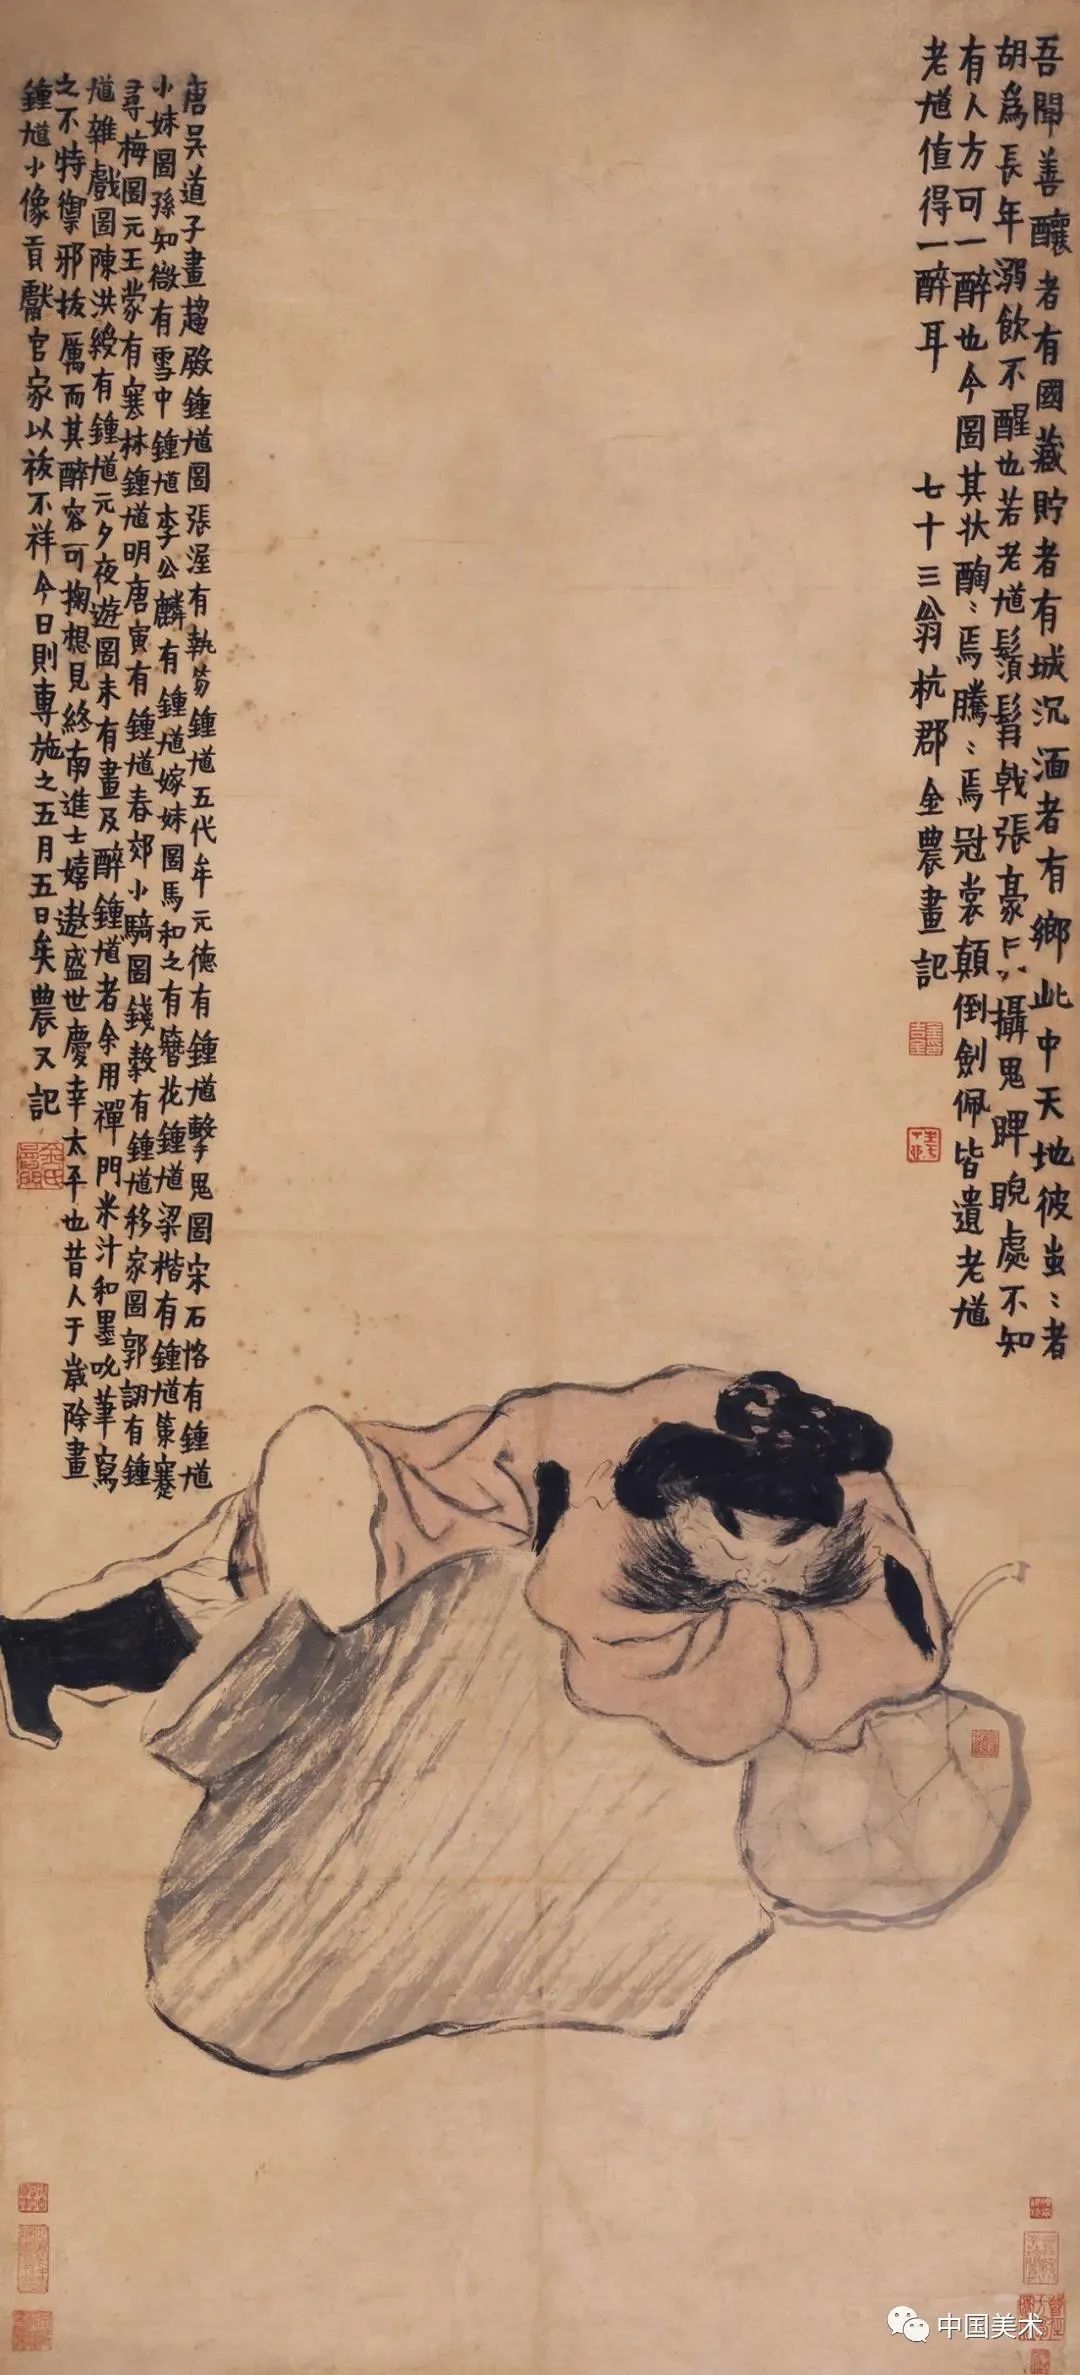 吾聞善釀者有國藏貯者有城沉湎者有鄉此中天地彼蚩〻者
胡爲長年溺飲不醒也若老馗鬚髯戟張豪攝鬼睥睨處不知
有人方可一醉也今圖其狀醄〻焉騰〻焉冠裳顛倒劍佩皆遺老馗
老馗值得一醉耳
七十三翁杭郡金農畫記
唐吴道子畫趨殿鍾馗圖張渥有執笏鍾馗五代牟元德有鍾馗擊鬼圖宋石恪有鍾馗
小妹圖孫知微有雪中鍾馗李公麟有鍾馗嫁妹圖馬和之有簪花鍾馗梁楷有鍾馗策蹇
尋梅圖元王蒙有寒林鍾馗明唐寅有鍾馗春郊小騎圖錢榖有鍾馗移家圖郭詡有鍾
馗雜戲圖陳洪綬有鍾馗元夕夜遊圖未有畫及醉鍾馗者余用禪門米汁和墨吮筆寫
之不特禦邪拔厲而其醉容可掬想見終南進士嬉遨盛世慶幸太平也昔人于嵗除畫
鍾馗小像貢獻官家以祓不祥今日則專施之五月五日矣農又記
金氏
中国美术